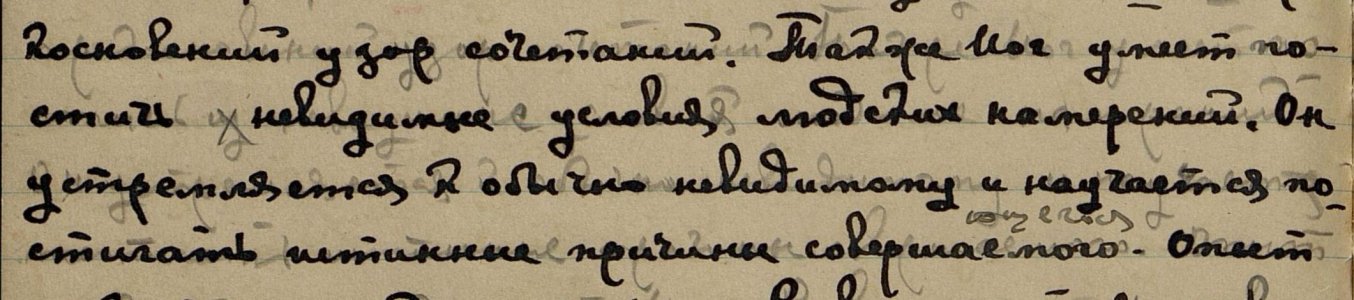 косновений узор сочетаний. Также Йог умеет по-
стичь невидимые условия людских намерений. Он
устремляется к обычно невидимому и научается по-
ющегося
стигать истинные причины совершаемого. Опыт